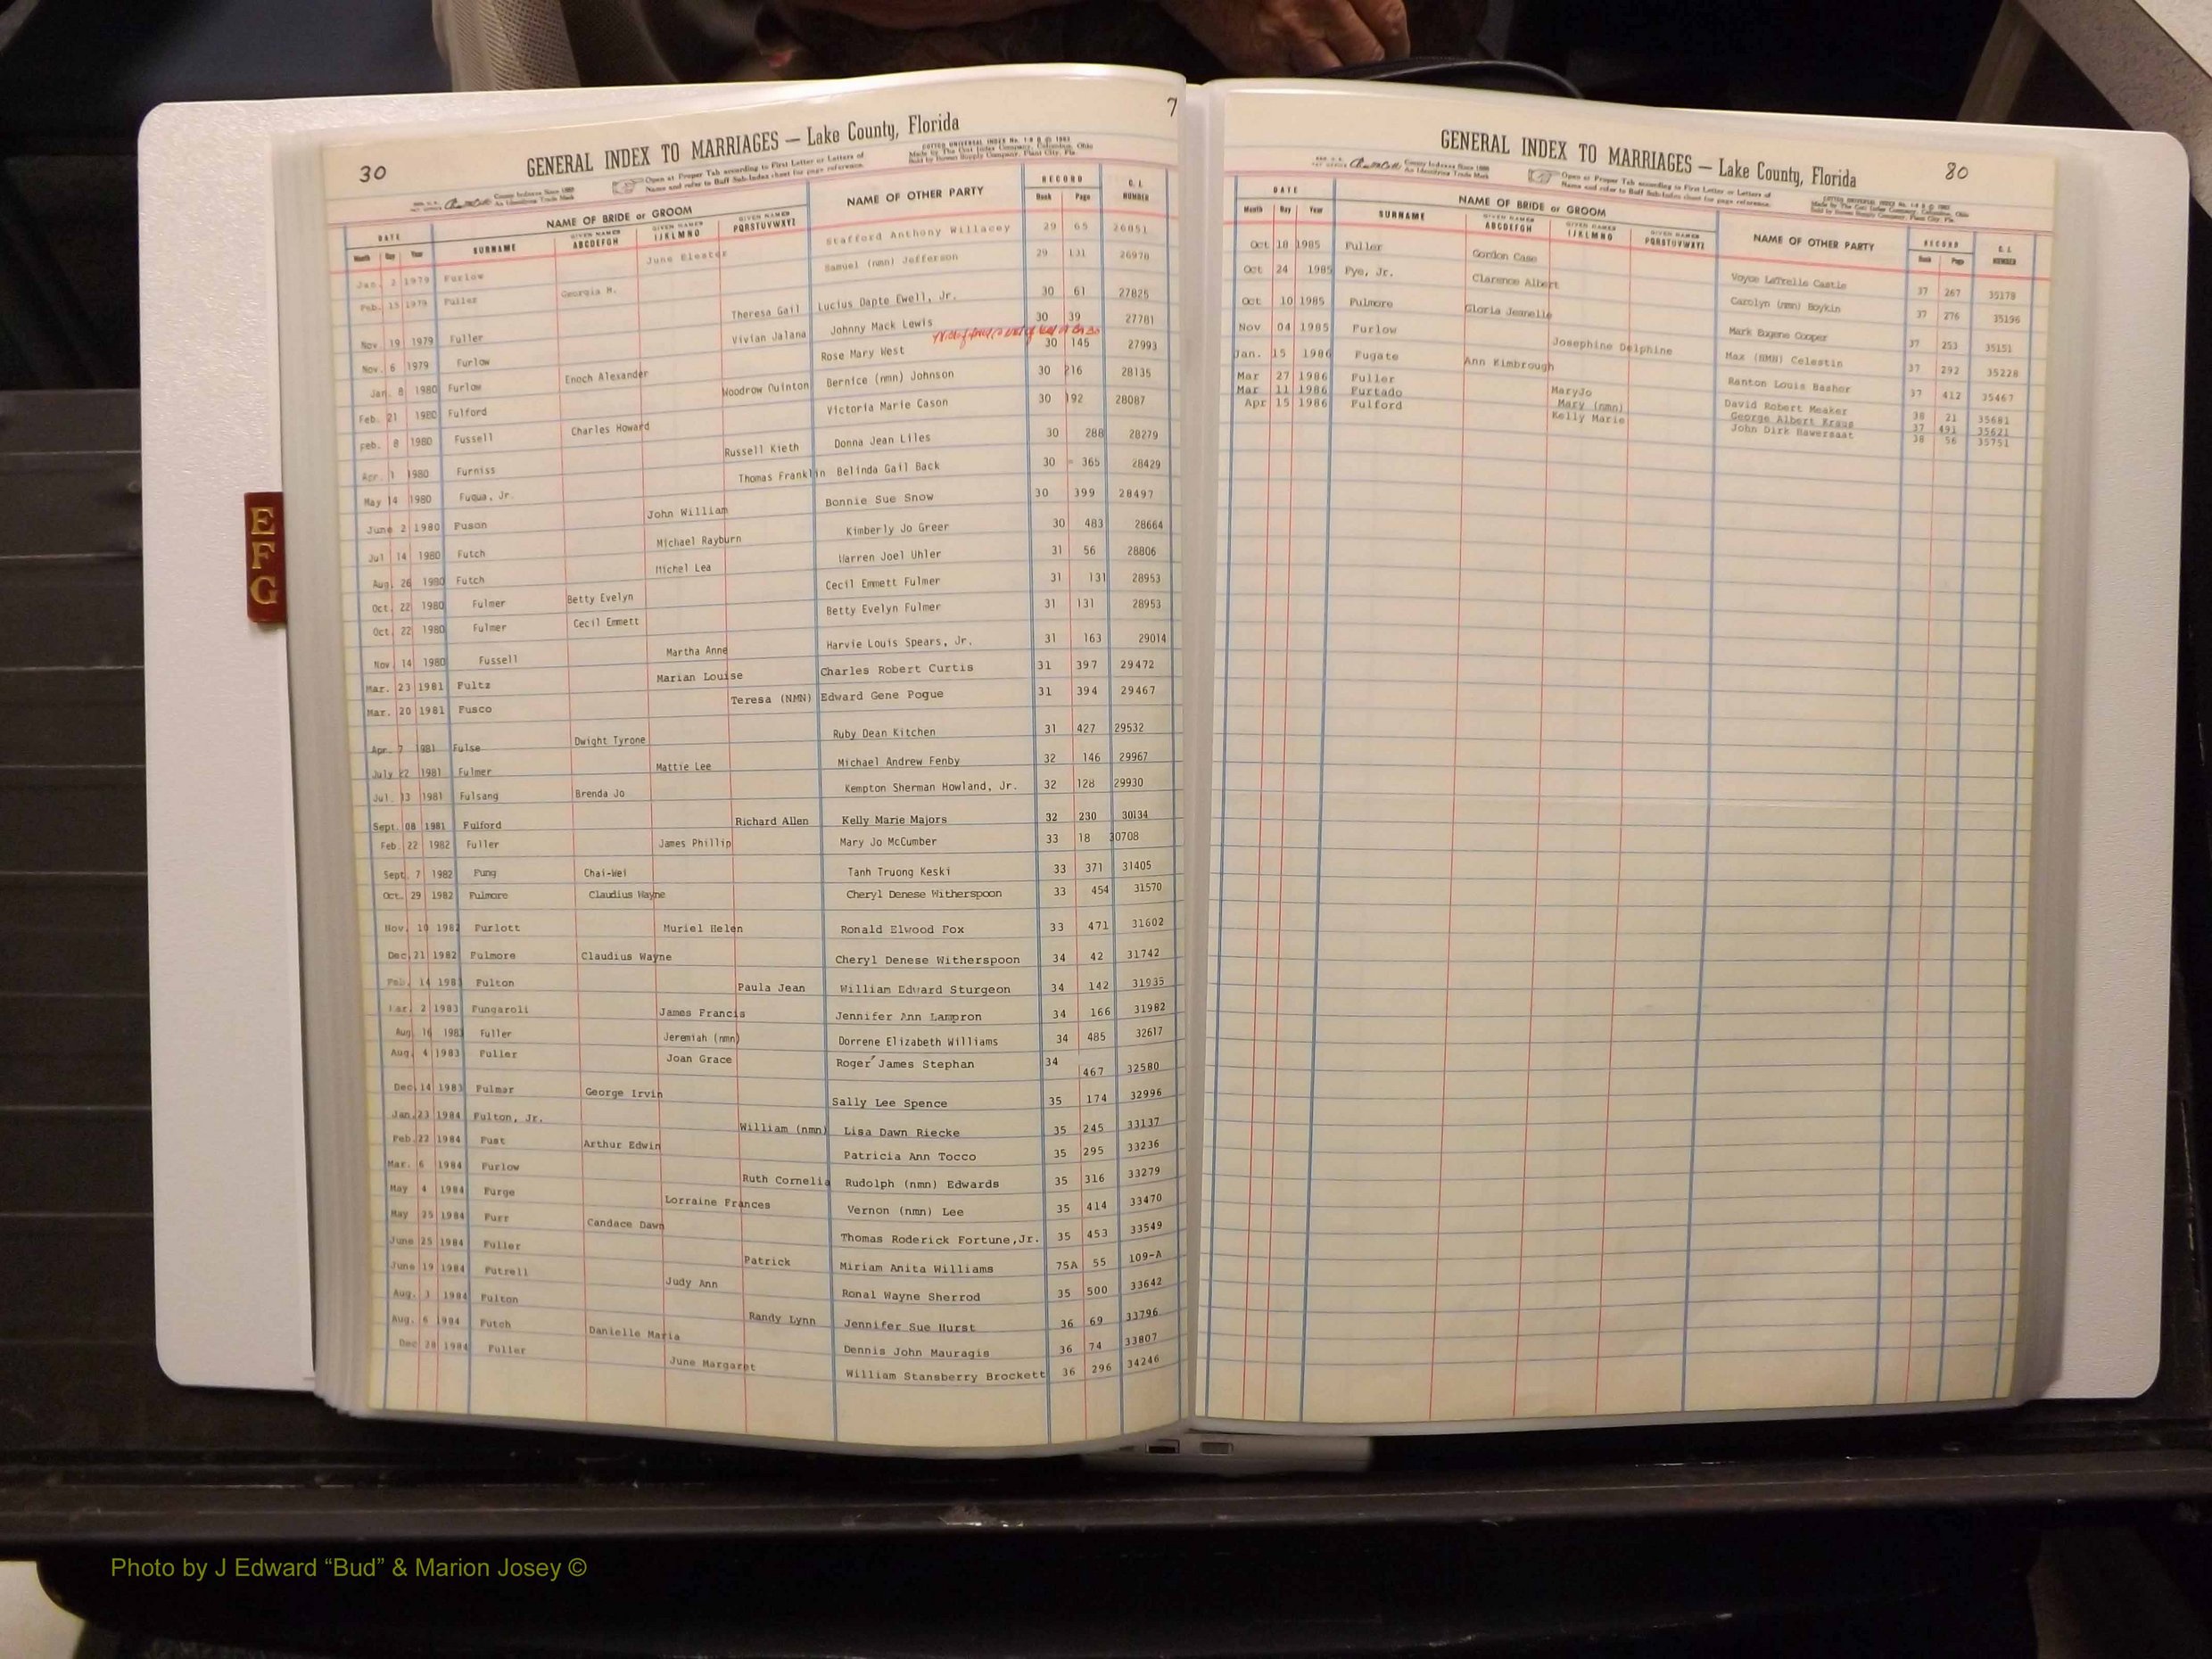 7
30
GENERAL INDEX TO MARRIAGES — Lake County, Florida
COTT'S UNIVERSAL INDEX
Made by The Cott Index Company, Columbus, Ohio
Sold by Bowen Supply Company, Plant City, Fla.
County Indexes Since 1888
An Identifying Trade Mark
Open at Proper Tab according to First Letter or Letters of
Name and refer to Buff Sub-Index sheet for page reference.
DATE NAME OF BRIDE or GROOM NAME OF OTHER PARTY RECORD NUMBER
Month Day Year SURNAME GIVEN NAMES ABCDEFGH GIVEN NAMES IJKLMNO GIVEN NAMES PQRSTUVWXYZ Book Page
Jan. 2 1979 Furlow June Eleator Stafford Anthony Willacey 29 65 26851
Feb. 15 1979 Fuller Georgia M. Samuel (nmn) Jefferson 29 131 26978
Nov 19 1979 Fuller Theresa Gail Lucius Dapte Ewell, Jr. 30 61 27825
Nov. 6 1979 Furlow Vivian Jalana Johnny Mack Lewis 30 39 27781
Jan. 8 1980 Furlow Enoch Alexander Rose Mary West 30 145 27993
Feb. 21 1980 Fulford Woodrow Quinton Bernice (nmn) Johnson 30 216 28135
Feb. 8 1980 Fussell Charles Howard Victoria Marie Cason 30 192 28087
Apr. 1 1980 Furniss Russell Kieth Donna Jean Liles 30 288 28279
May 14 1980 Fuqua, Jr. Thomas Franklin Belinda Gail Back 30 365 28429
June 2 1980 Fuson John William Bonnie Sue Snow 30 399 28497
Jul 14 1980 Futch Michael Rayburn Kimberly Jo Greer 30 483 28664
Aug. 26 1980 Futch Michel Lea Warren Joel Uhler 31 56 28806
Oct. 22 1980 Fulmer Betty Evelyn Cecil Emmett Fulmer 31 131 28953
Oct. 22 1980 Fulmer Cecil Emmett Betty Evelyn Fulmer 31 131 28953
Nov 14 1980 Fussell Martha Anne Harvie Louis Spears, Jr. 31 163 29014
Mar. 23 1981 Fultz Marian Louise Charles Robert Curtis 31 397 29472
Mar. 20 1981 Fusco Teresa (NMN) Edward Gene Pogue 31 394 29467
Apr. 7 1981 Fulse Dwight Tyrone Ruby Dean Kitchen 31 427 29532
July 22 1981 Fulmer Mattie Lee Michael Andrew Fenby 32 146 29967
Jul. 13 1981 Fulsang Brenda Jo Kempton Sherman Howland, Jr. 32 128 29930
Sept. 08 1981 Fulford Richard Allen Kelly Marie Majors 32 230 30134
Feb. 22 1982 Fuller James Phillip Mary Jo McCumber 33 18 30708
Sept. 7 1982 Fung Chai-Wei Tanh Truong Keski 33 371 31405
Oct. 29 1982 Fulmore Claudius Wayne Cheryl Denese Witherspoon 33 454 31570
Nov. 10 1982 Furlott Muriel Helen Ronald Elwood Fox 33 471 31602
Dec. 21 1982 Fulmore Claudius Wayne Cheryl Denese Witherspoon 34 42 31742
Feb. 14 1983 Fulton Paula Jean William Edward Sturgeon 34 142 31935
Mar. 2 1983 Fungaroli James Francis Jennifer Ann Lampron 34 166 31982
Aug. 16 1983 Fuller Jeremiah (nmn) Dorrene Elizabeth Williams 34 485 32617
Aug. 4 1983 Fuller Joan Grace Roger James Stephan 34 467 32580
Dec. 14 1983 Fulmar George Irvin Sally Lee Spence 35 174 32996
Jan. 23 1984 Fulton, Jr. William (nmn) Lisa Dawn Riecke 35 245 33137
Feb. 22 1984 Fust Arthur Edwin Patricia Ann Tocco 35 295 33236
Mar. 6 1984 Furlow Ruth Cornelia Rudolph (nmn) Edwards 35 316 33279
May 4 1984 Furge Lorraine Frances Vernon (nmn) Lee 35 414 33470
May 25 1984 Furr Candace Dawn Thomas Roderick Fortune,Jr. 35 453 33549
June 25 1984 Fuller Patrick Miriam Anita Williams 75A 55 109-A
June 19 1984 Futrell Judy Ann Ronal Wayne Sherrod 35 500 33642
Aug. 3 1984 Fulton Randy Lynn Jennifer Sue Hurst 36 69 33796
Aug. 6 1984 Futch Danielle Maria Dennis John Mauragis 36 74 33807
Dec 28 1984 Fuller June Margaret William Stansberry Brockett 36 296 34246
E
F
G
GENERAL INDEX TO MARRIAGES — Lake County, Florida
80
County Indexes Since 1888
An Identifying Trade Mark
Open at Proper Tab according to First Letter or Letters of
Name and refer to Buff Sub-Index sheet for page reference.
DATE NAME OF BRIDE or GROOM NAME OF OTHER PARTY RECORD NUMBER
Month Day Year SURNAME GIVEN NAMES ABCDEFGH GIVEN NAMES IJKLMNO GIVEN NAMES PQRSTUVWXYZ Book Page
Oct 18 1985 Fuller Gordon Case Voyce LaTrelle Castle 37 267 35178
Oct 24 1985 Fye, Jr. Clarence Albert Carolyn (nmn) Boykin 37 276 35196
Oct 10 1985 Fulmore Gloria Jeanelle Mark Eugene Cooper 37 253 35151
Nov 04 1985 Furlow Josephine Delphine Max (NMN) Celestin 37 292 35228
Jan. 15 1986 Fugate Ann Kimbrough Ranton Louis Bashor 37 412 35467
Mar 27 1986 Fuller MaryJo David Robert Meaker 38 21 35681
Mar 11 1986 Furtado Mary (nmn) George Albert Kraus 37 491 35621
Apr 15 1986 Fulford Kelly Marie John Dirk Bawersaat 38 56 35751
Photo by J Edward “Bud” & Marion Josey ©